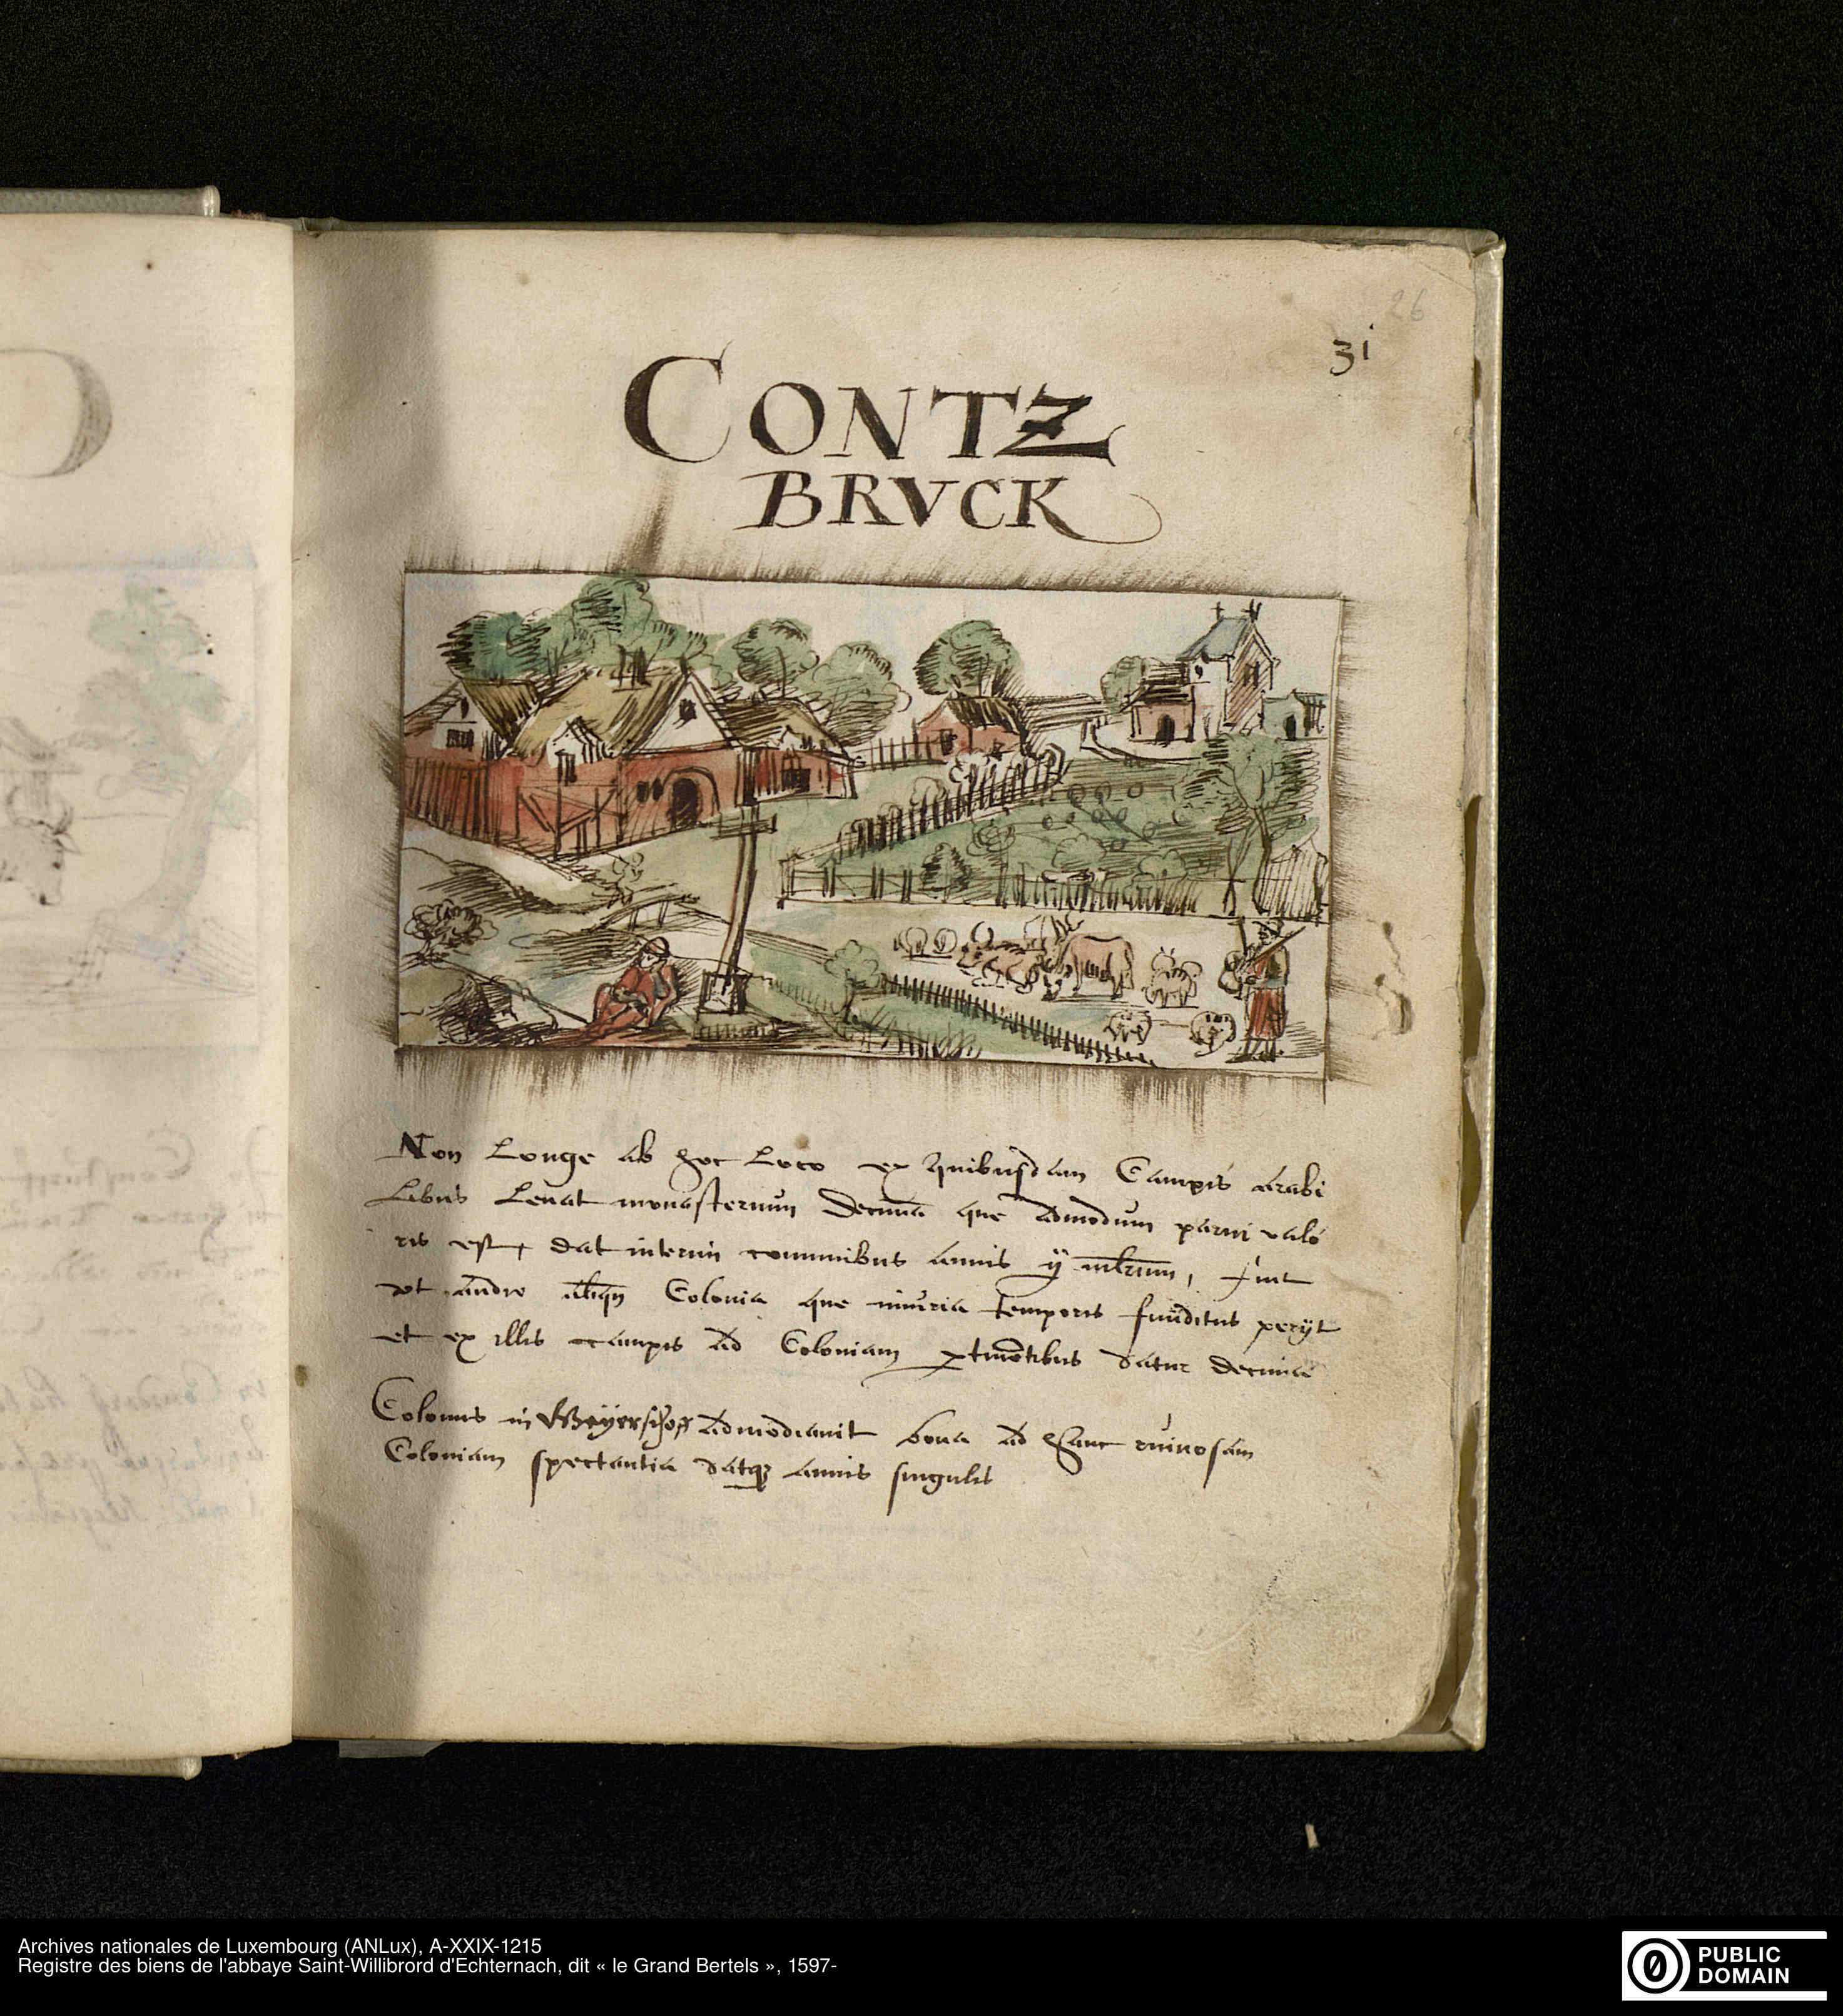 26
31
CONTZ
BRVCK
Non Longe ab hoc Loco ex quibusdam Campis arabi
Libus Leuat monasterium decimã que admodum parui valo
ris est, dat interim communibus annis ij mlrum, fuit
vt audio aliqñ Colonia que iniuria temporis funditus perijt
et ex illis campis ad Coloniam ptinẽtibus datur decima
Colonus in admodiauit bona ad hanc ruinosam
Coloniam spectantia datq annis singulis
Archives nationales de Luxembourg (ANLux), A-XXIX-1215
Registre des biens de l'abbaye Saint-Willibrord d'Echternach, dit « le Grand Bertels », 1597-
PUBLIC
DOMAIN